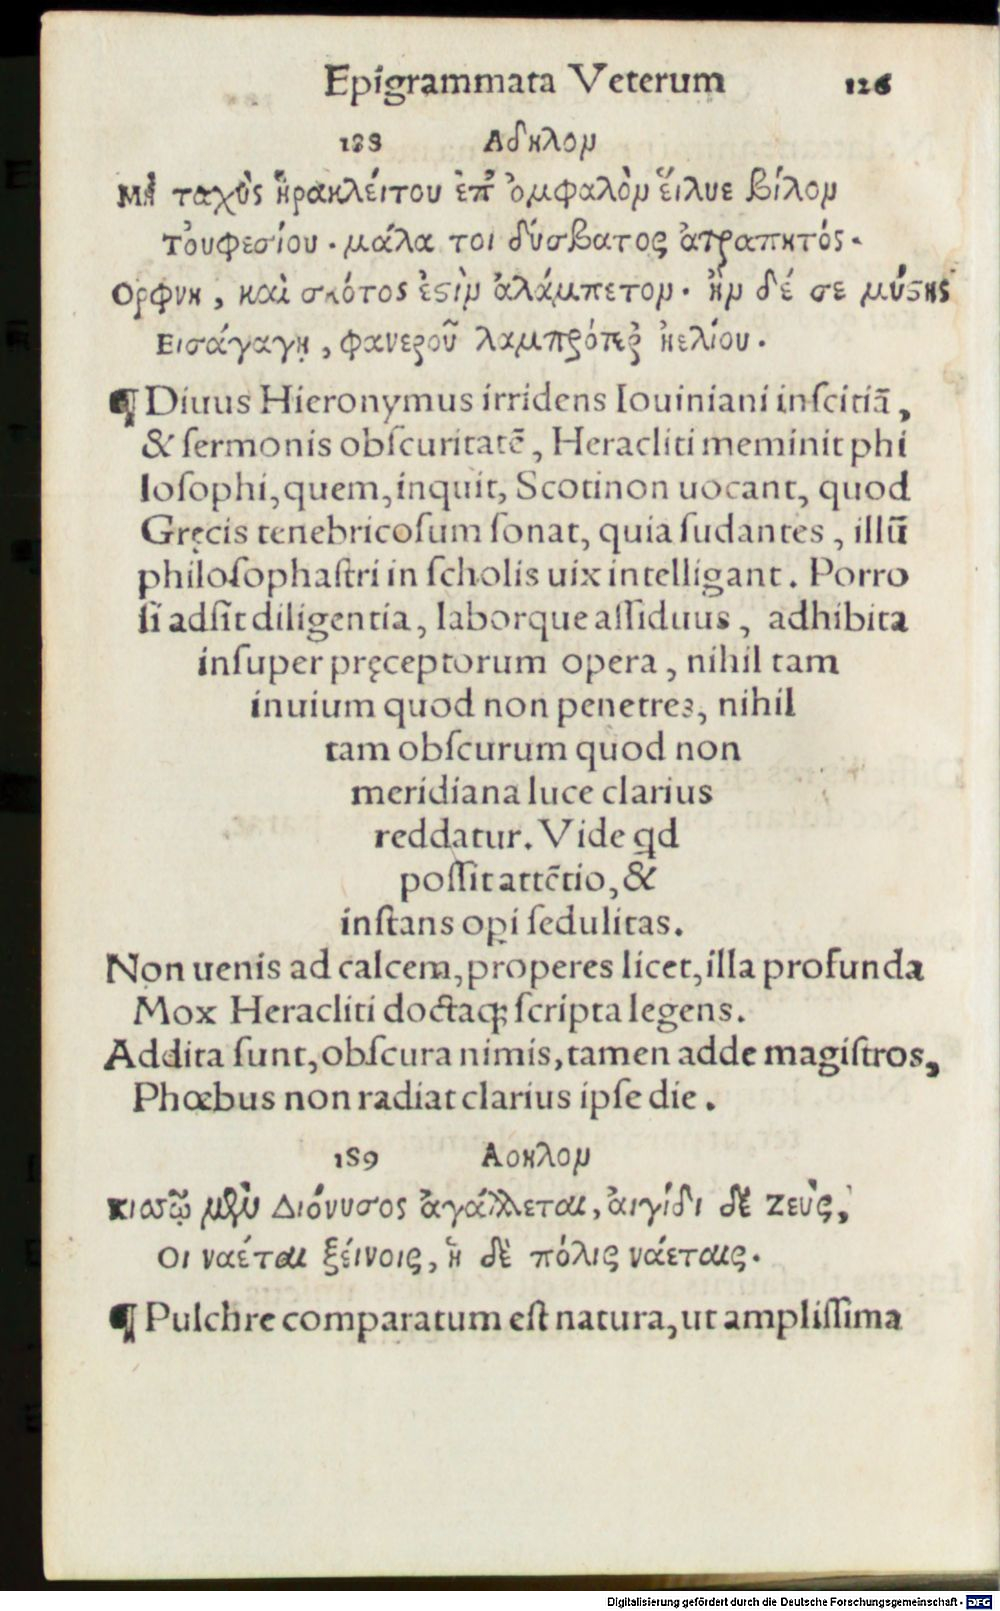 Epigrammata Veterum 126
188 Αδηλομ
Μὴ ταχὺς ἡρακλείτου ἐπ' ὀμφαλὸμ ἕιλυε βίλομ
Τὀυφεσίου. μάλα τοι δύσβατος ἀτραπητός.
Ορφνη, καὶ σκότος ἐςὶμ ἀλάμπετομ. ἢμ δέ σε μύςης
Εισάγαγῃ, φανεροῦ λαμπρότερ' ἠελίου.
¶ Diuus Hieronymus irridens Iouiniani inſcitiā,
& ſermonis obſcuritatē, Heracliti meminit phi
loſophi, quem, inquit, Scotinon uocant, quod
Gręcis tenebricoſum ſonat, quia ſudantes, illū
philoſophaſtri in ſcholis uix intelligant. Porro
ſi adſit diligentia, laborque aſſiduus, adhibita
inſuper pręceptorum opera, nihil tam
inuium quod non penetres, nihil
tam obſcurum quod non
meridiana luce clarius
reddatur. Vide qd
poſſit attētio, &
inſtans opi ſedulitas.
Non uenis ad calcem, properes licet, illa profunda
Mox Heracliti doctaq; ſcripta legens.
Addita ſunt, obſcura nimis, tamen adde magiſtros,
Phœbus non radiat clarius ipſe die.
189 Αοηλομ
κισσῷ μὲν Διόνυσος ἀγάλλεται, ἀιγίδι δὲ Ζεὺς,
Οι ναέται ξείνοις, ἡ δὲ πόλις νάεταις.
¶ Pulchre comparatum eſt natura, ut ampliſſima
Digitalisierung gefördert durch die Deutsche Forschungsgemeinschaft - DFG